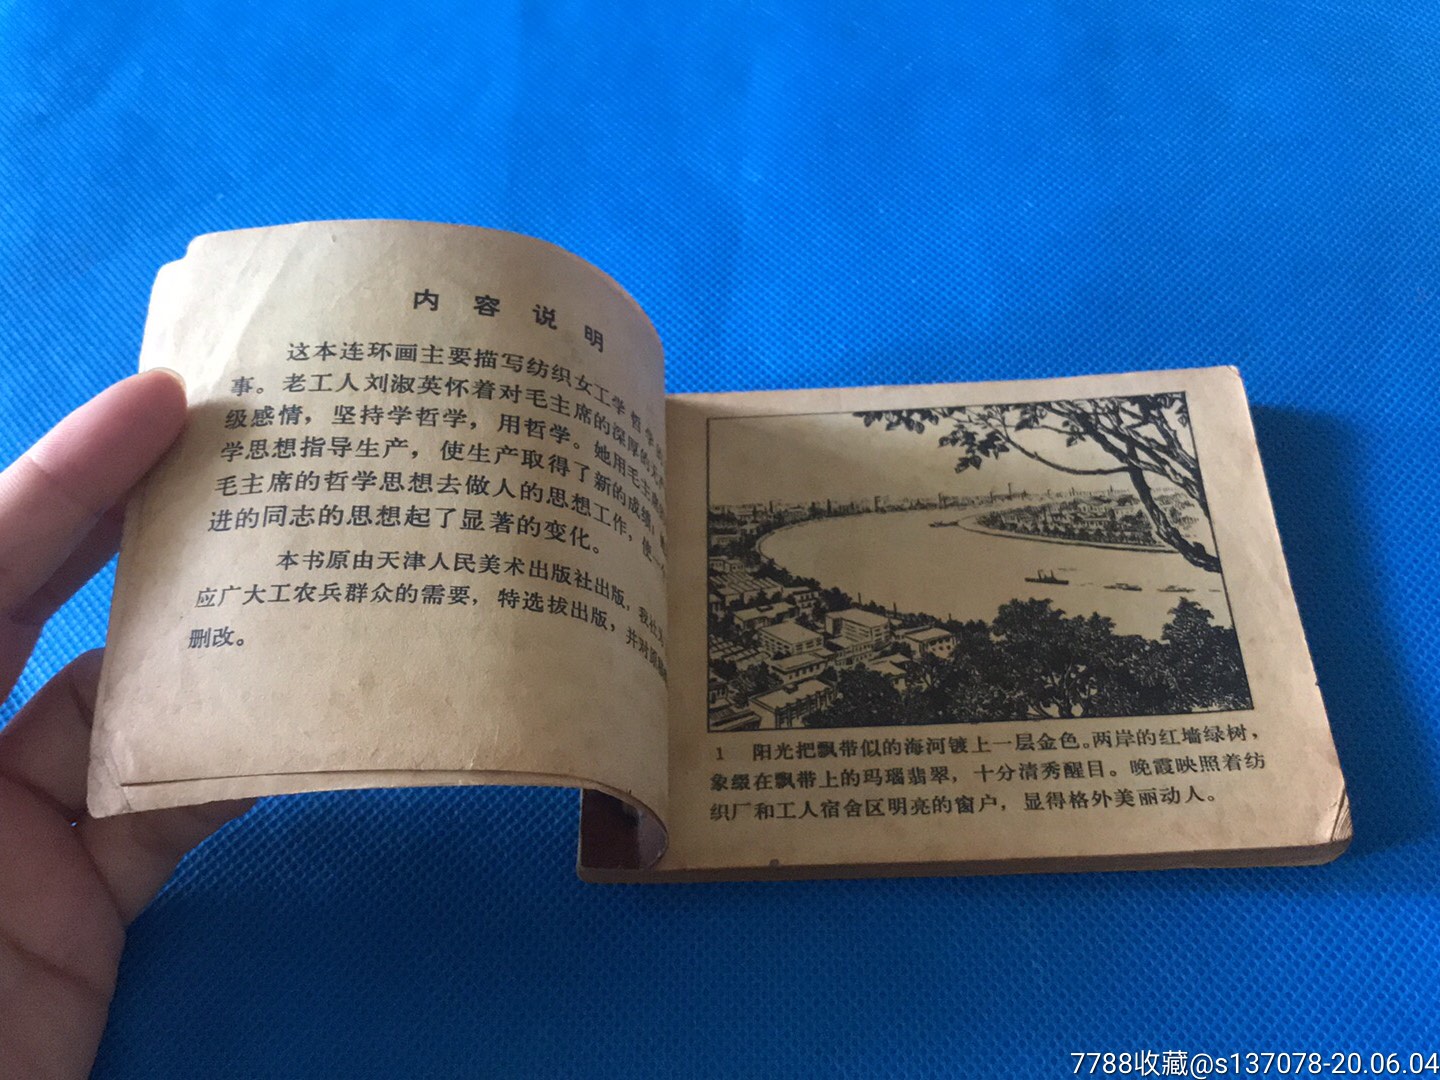 内容说明
这本连环画主要描写纺织女工学哲学
事。老工人刘淑英怀着对毛主席的深厚的
级感情，坚持学哲学，用哲学。她用毛主席
学思想指导生产，使生产取得了新的成绩；
毛主席的哲学思想去做人的思想工作，使一
进的同志的思想起了显著的变化。
本书原由天津人民美术出版社出版，我社
应广大工农兵群众的需要，特选拔出版，并对
删改。
1 阳光把飘带似的海河镀上一层金色。两岸的红墙绿树，
象缀在飘带上的玛瑙翡翠，十分清秀醒目。晚霞映照着纺
织厂和工人宿舍区明亮的窗户，显得格外美丽动人。
7788收藏@s137078-20.06.04